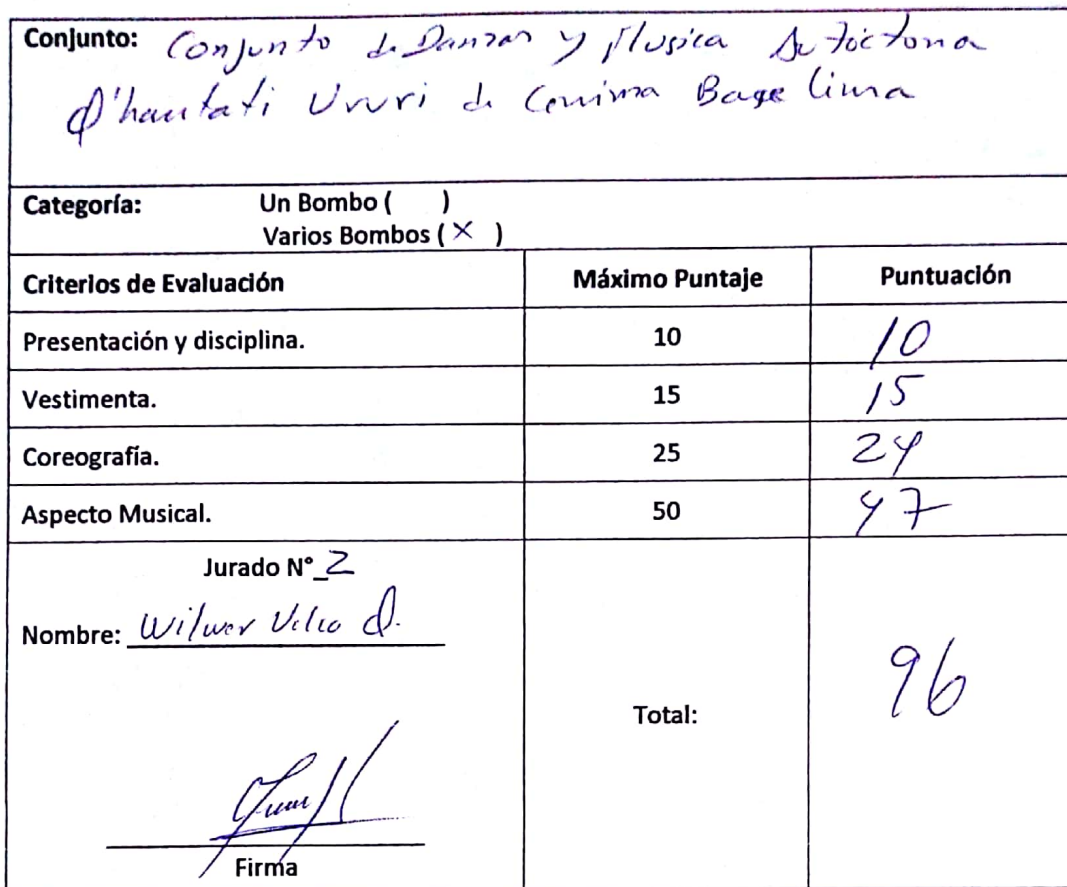 Conjunto: Conjunto de Danzas y Musica Autoctona
Q'hantati Ururi de Conima Base Lima
Categoría: Un Bombo ( )
Varios Bombos ( X )
Criterios de Evaluación Máximo Puntaje Puntuación
Presentación y disciplina. 10 10
Vestimenta. 15 15
Coreografía. 25 24
Aspecto Musical. 50 47
Jurado N°_2
Nombre: Wilmer
Total: 96
Firma